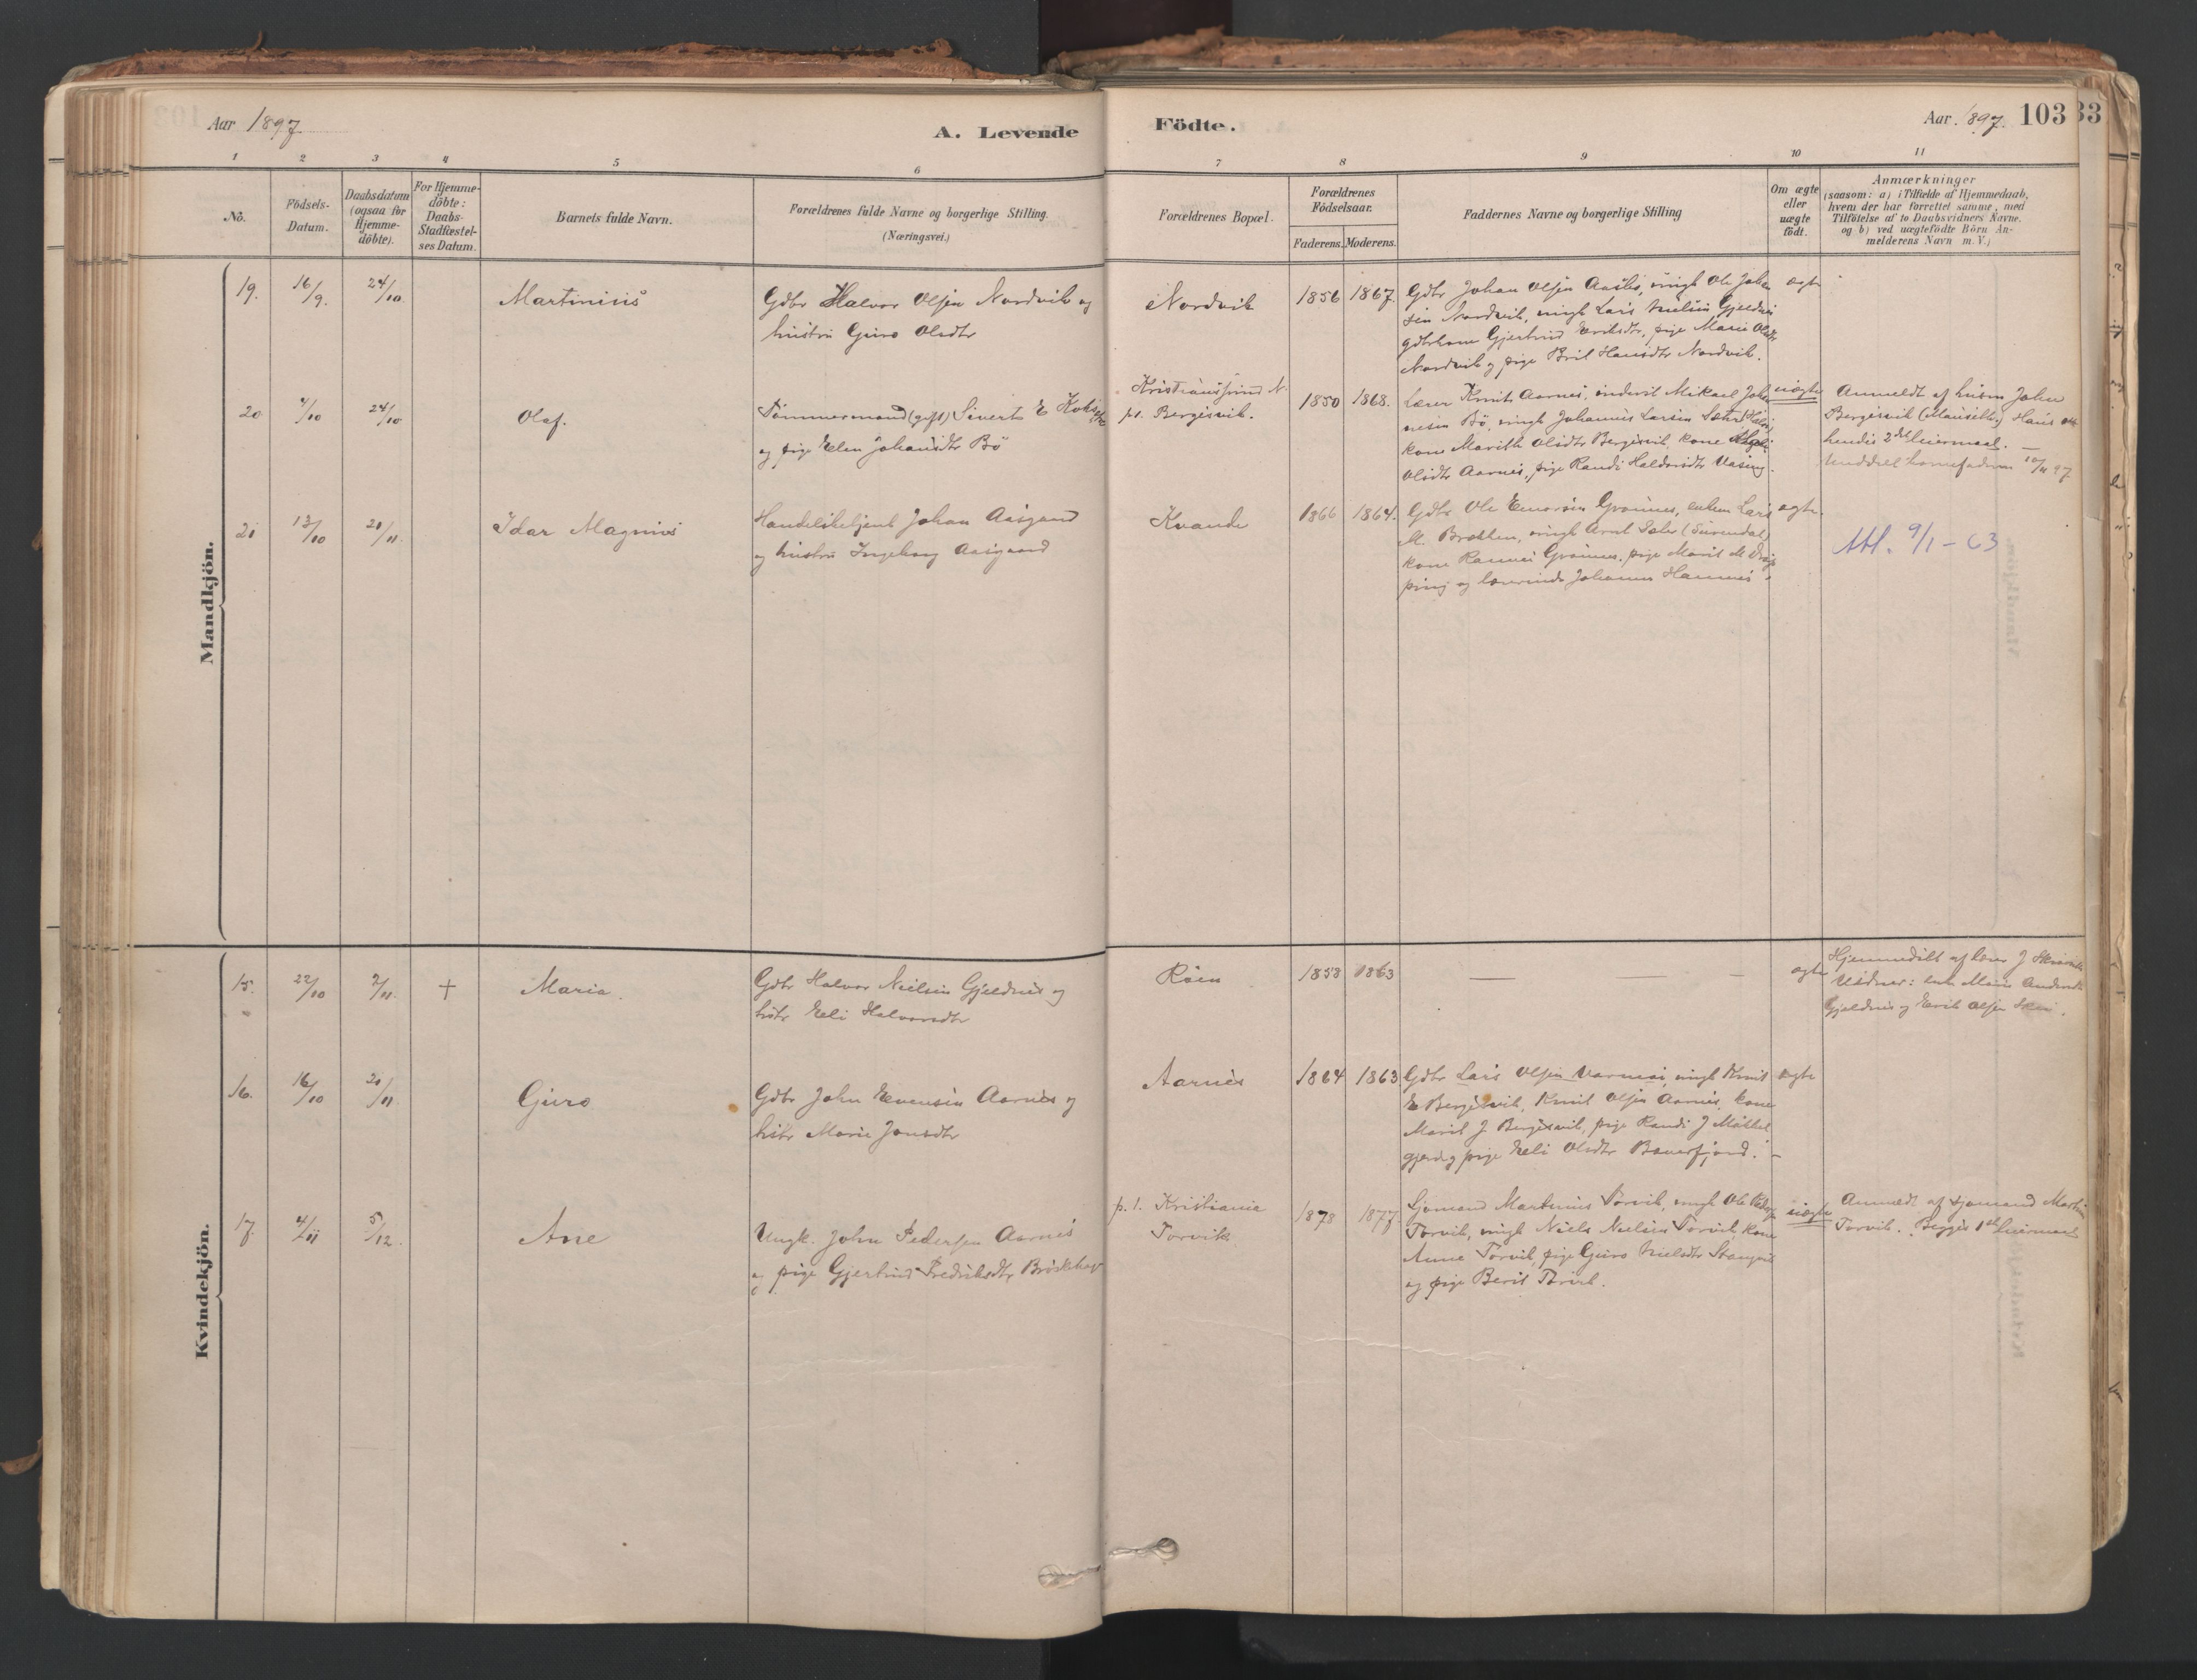 Aar 1897
A. Levende
Födte.
Aar 1897. 103
33
1 2 3 4 5 6 7 8 9 10 11
No.
Födsels-
Datum.
Daabsdatum
(ogsaa for
Hjemme-
döbte).
For Hjemme-
döbte:
Daabs-
Stadfæstel-
ses Datum.
Barnets fulde Navn.
Forældrenes fulde Navne og borgerlige Stilling.
(Næringsvei.)
Forældrenes Bopæl.
Forældrenes
Födselsaar.
Faderens. Moderens.
Faddernes Navne og borgerlige Stilling
Om ægte
eller
uægte
födt.
Anmærkninger
(saasom: a) i Tilfælde af Hjemmedaab,
hvem der har forrettet samme, med
Tilföielse af to Daabsvidners Navne.
og b) ved uægtefödte Börn An-
melderens Navn m. V.)
Mandkjön.
19. 16/9. 24/10 Martinius
Gdbr Halvor Olsen Nordvik og
hustru Guro Olsdtr
Nordvik 1856 1867.
Gdbr Johan Olsen ungk Ole Johan
sen Nordvik, ungk Lars Nielsen Gjeldnes
gdbrkone Gjertrud Eriksdtr, pige Marie Olsdtr
Nordvik og pige Brit Hansdtr Nordvik.
ægte
20 4/10 24/10 Olaf.
Tömmermand (gift) Sivert E
og pige Elen Johansdtr Bö
Kristianssund N.
p.t. Bergesvik. 1850 1868.
Lærer Knut Aarnes, inderst Mikael Johan
nesen Bö, ungk Johannes Larsen Sæter (Halse)
kone Marith Olsdtr Bergesvik, kone
Olsdtr Aarnes, pige Randi Haldorsdtr
uægte
Anmeldt af husm John
Bergesvik Hans
hendes 2det leiermaal. —
10/11 97
21 13/10 21/11. Idar Magnus
Handelsbetjent Johan Aasgaard
og hustru Ingeborg Aasgaard
Kvande 1866 1864.
Gdbr Ole Grönnes, enkem Lars
M. Bratten, ungk Arnt Sæter (Surendal)
kone Grönnes, pige Marit M
og lærerinde Johanna Hamnes
ægte.
Att. 9/1 - 63
Kvindekjön.
15. 22/10 2/11. † Maria.
Gdbr Halvor Nielsen Gjeldnes og
hstr Eli Halvorsdtr
Röen 1858 1863 — — —
ægte
Hjemmedöbt af lærer J
Vidner: enke Marie Andersdtr
Gjeldnes og Erik Olsen
16. 16/10 21/11. Guro
Gdbr John Evensen Aarnes og
hstr Marie Jonsdtr
Aarnes 1864 1863
Gdbr Lars Olsen ungk Knut
E Bergesvik, Knut Olsen Aarnes, kone
Marit J. Bergesvik, pige Randi J
gjerd og pige Eli Olsdtr Bæverfjord. —
ægte
17. 4/11 5/12. Ane
Ungk. John Pedersen Aarnes
og pige Gjertrud Fredriksdtr
p.t. Kristiania
Torvik 1878 1877
Sjömand Martinus Torvik, ungk Ole
Torvik, ungk Niels Nielsen Torvik, kone
Anne Torvik, pige Guro Nielsdtr Stangvik
og pige Berit Torvik.
uægte
Anmeldt af sjömand Martin
Torvik. Begges 1ste leiermaal